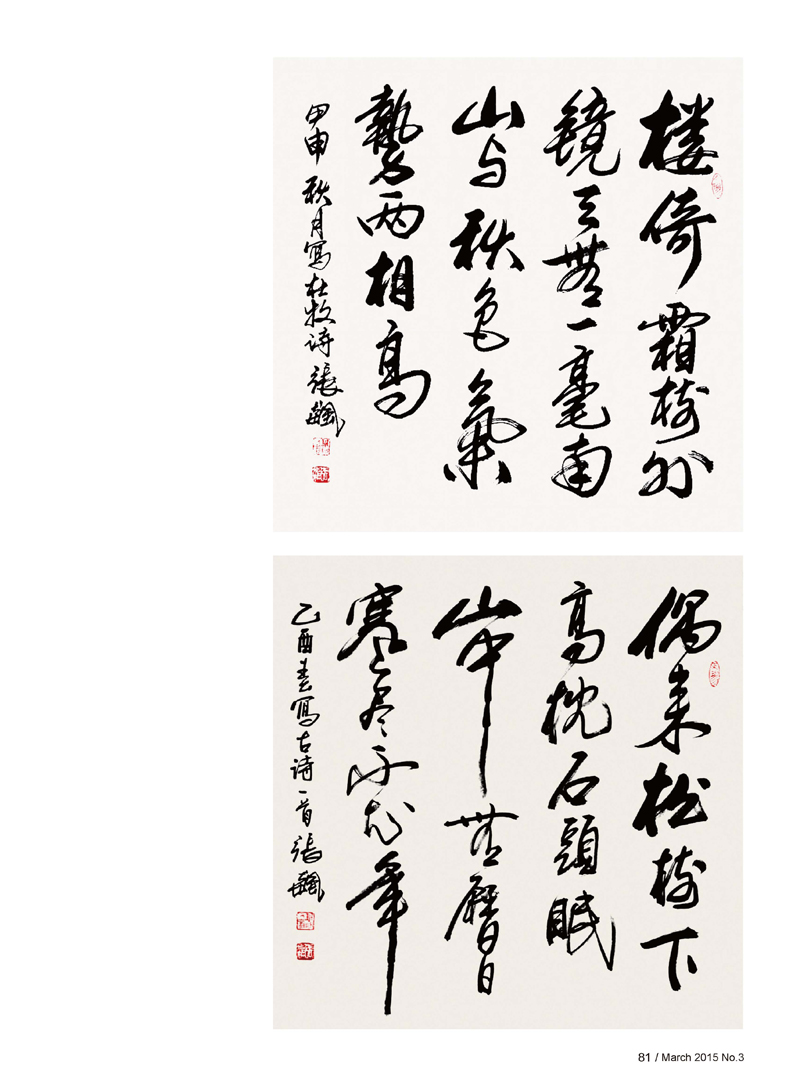 楼倚霜樹外
鏡天無一毫南
山与秋色氣
勢两相高
甲申秋月寫杜牧诗張飚
偶来松樹下
高枕石頭眠
山中無曆日
寒尽不知年
乙酉春寫古诗一首張飚
81 / March 2015 No.3